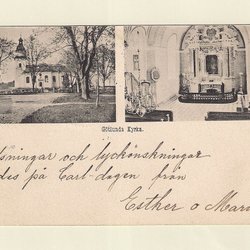 Götlunda Kyrka.
sningar och lyckönskningar
des på Carl-dagen från
Esther o Mari